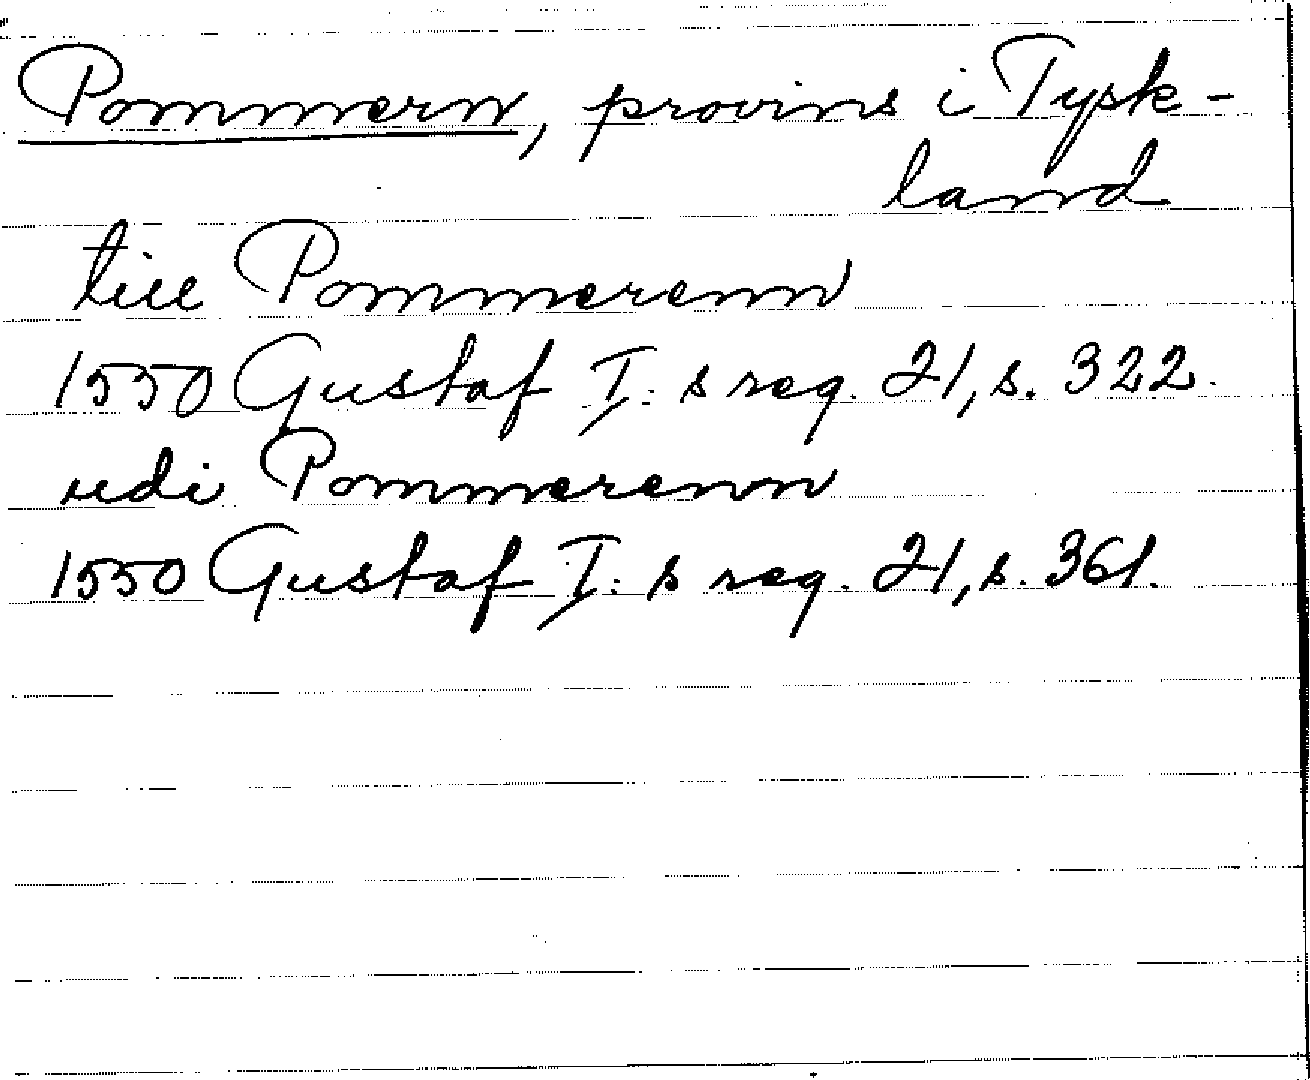 Pommern, provins i Tysk-
land
till Pommerenn
1550 Gustaf I:s reg. 21, s. 322.
udi Pommerenn
1550 Gustaf I:s reg. 21, s. 361.